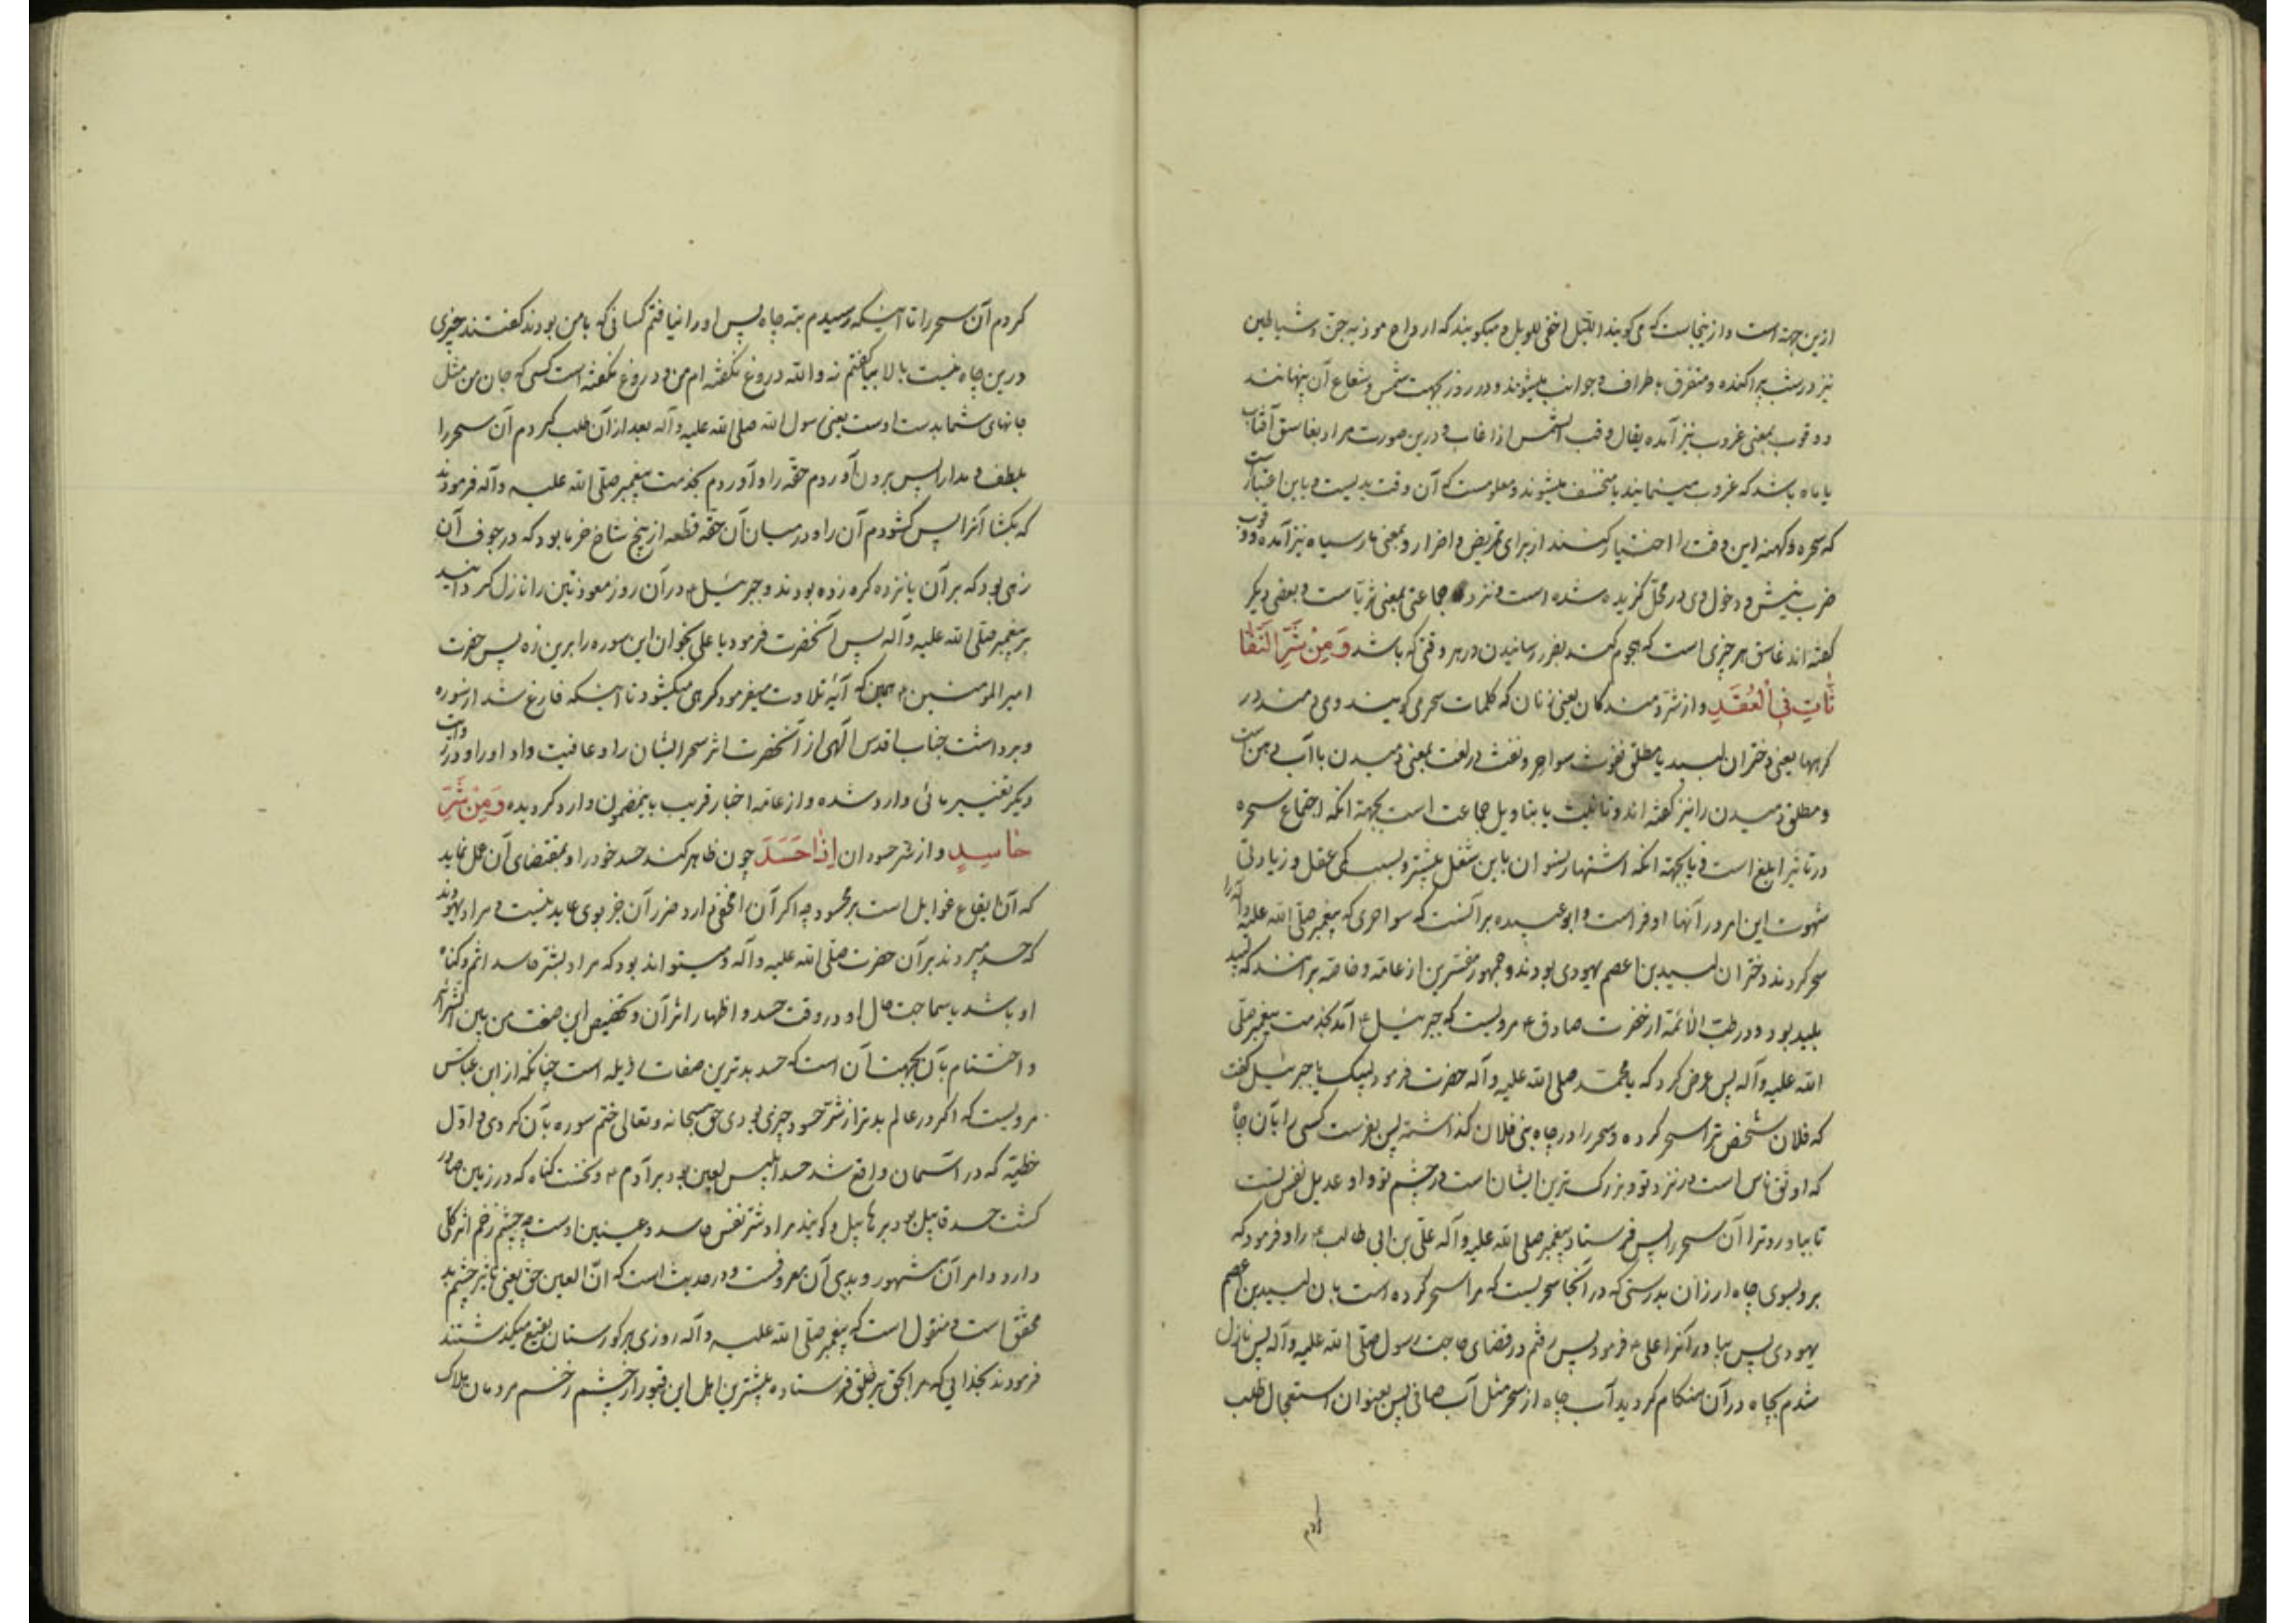 ازین جهة است و ازینجاست که می‌گویند اللیل اخفی للویل و میگویند که ارواح موذیه جن و شیاطین
نیز در شب پراکنده و متفرق باطراف و جوانب میشوند و در روز بجهت شمس و شعاع آن پنهانند
و وقوب بمعنی غروب نیز آمده یقال وقب الشمس اذا غاب و درین صورت مراد بغاسق آفتاب
یا ماه باشد که غروب مینمایند یا منخسف میشوند و معلومست که آن وقت بدیست و باین اعتبارست
که سحره و کهنه این وقت را اختیار کنند از برای تمریض و اضرار و بمعنی مار سیاه نیز آمده و وقوب
ضرب نیش و دخول وی در محل گزیده شده است و نزد جماعتی بمعنی ثریاست و بعضی دیگر
گفته اند غاسق هر چیزی است که هجوم کند بضرر رسانیدن در هر وقتی که باشد وَمِنْ شَرِّ النَّفّا
ثاتِ فِی الْعُقَدِ و از شر دمندگان یعنی زنان که کلمات سحر می‌گویند و می‌دمند در
گرهها یعنی دختران لبید یا مطلق نفوس سواحر و نفث در لغت بمعنی دمیدن با آب دهن است
و مطلق دمیدن را نیز گفته اند و تانیث یا بتاویل جماعت است بجهة انکه اجتماع سحره
در تاثیر ابلغ است و یا بجهة انکه اشتهار نسوان باین شغل بیشتر و بسبب کمی عقل و زیادتی
شهوت این امر در آنها اوفر است و ابو عبیده بر آنست که سواحری که پیغمبر صلی الله علیه و آله را
سحر کردند دختران لبید بن اعصم یهودی بودند و جمهور مفسرین از عامه و خاصه بر انند که لبید
پلید بود و در طب الائمة از حضرت صادق ع مرویست که جبرئیل ع آمد بخدمت پیغمبر صلی
الله علیه و آله پس عرض کرد که یا محمد صلی الله علیه و آله حضرت فرمود لبیک یا جبرئیل گفت
که فلان شخص ترا سحر کرده و سحر را در چاه بنی فلان گذاشته پس بفرست کسی را بآن چاه
که اوثق ناس است در نزد تو و بزرگ ترین ایشان است در چشم تو و او عدیل نفس تست
تا بیاورد ترا آن سحر را پس فرستاد پیغمبر صلی الله علیه و آله علی بن ابی طالب ع را و فرمود که
برو بسوی چاه ارزان بدرستی که در آنجا سحریست که مرا سحر کرده است بان لبید بن اعصم
یهودی پس بیاور آنرا علی ع فرمود پس رفتم در قضای حاجت رسول صلی الله علیه و آله پس نازل
شدم بچاه در آن هنگام گردید آب چاه از سحر مثل آب صافی پس بعنوان استعجال طلب
کردم
کردم آن سحر را تا اینکه رسیدم بته چاه پس او را نیافتم کسانی که با من بودند گفتند چیزی
درین چاه نیست بالا بیا گفتم نه والله دروغ نگفته ام من و دروغ نگفته است کسی که جان من مثل
جانهای شما بدست اوست یعنی رسول الله صلی الله علیه و آله بعد از آن طلب کردم آن سحر را
بلطف و مدارا پس برون آوردم حقه را و آوردم بخدمت پیغمبر صلی الله علیه و آله فرمودند
که بگشا آنرا پس گشودم آن را و در میان آن حقه قطعه از بیخ شاخ خرما بود که در جوف آن
زهی بود که بر آن یانزده گره زده بودند و جبرئیل ع در آن روز معوذتین را نازل گردانید
بر پیغمبر صلی الله علیه و آله پس آنحضرت فرمود یا علی بخوان این سوره را برین زه پس حضرت
امیر المومنین ع همین که آیهٔ تلاوت میفرمود گرهی میگشود تا اینکه فارغ شد از سوره
و برداشت جناب اقدس الهی از آنحضرت اثر سحر ایشان را و عافیت داد او را و در روایت
دیگر تغییر مائی وارد شده و از عامه اخبار قریب باینمضمون وارد گردیده وَمِنْ شَرِّ
حاسِدٍ و از شر حسودان اِذا حَسَدَ چون ظاهر کند حسد خود را و بمقتضای آن عمل نماید
که آن ایقاع غوایل است بر محسود چه اگر آن را مخفی دارد ضرر آن جز بوی عاید نیست و مراد یهودند
که حسد میبردند بر آن حضرت صلی الله علیه و آله و میتواند بود که مراد بشر حاسد اثم و گناه
او باشد یا سماجت حال او در وقت حسد و اظهار اثر آن و تخصیص این صفت من بین الشرائر
و اختتام بآن بجهت آن است که حسد بدترین صفات رذیله است چنانکه از ابن عباس
مرویست که اگر در عالم بدتر از شر حسود چیزی بودی حق سبحانه و تعالی ختم سوره بآن کردی و اول
خطیئه که در آسمان واقع شد حسد ابلیس لعین بود بر آدم ع و نخست گناه که در زمین صادر
گشت حسد قابیل بود بر هابیل و گویند مراد شر نفس حاسد و عینین اوست چه چشم زخم اثر کلی
دارد و امر آن مشهور و بدی آن معروفست و در حدیث است که انّ العین حق یعنی تاثیر چشم بد
محقق است و منقول است که پیغمبر صلی الله علیه و آله روزی بر گورستان بقیع میگذشتند
فرمودند بخدایی که مرا بحق بر خلق فرستاده بیشترین اهل این قبور از چشم زخم مردمان هلاک